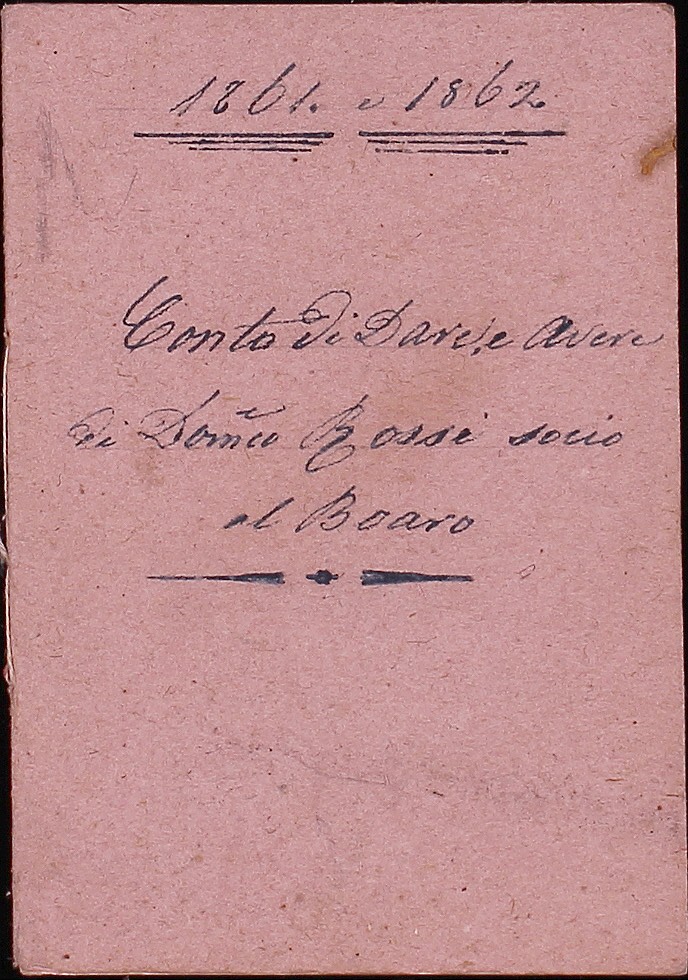 1861. e 1862.
Conto di Dare, e Avere
di Dom̃co Rossi socio
al Boaro